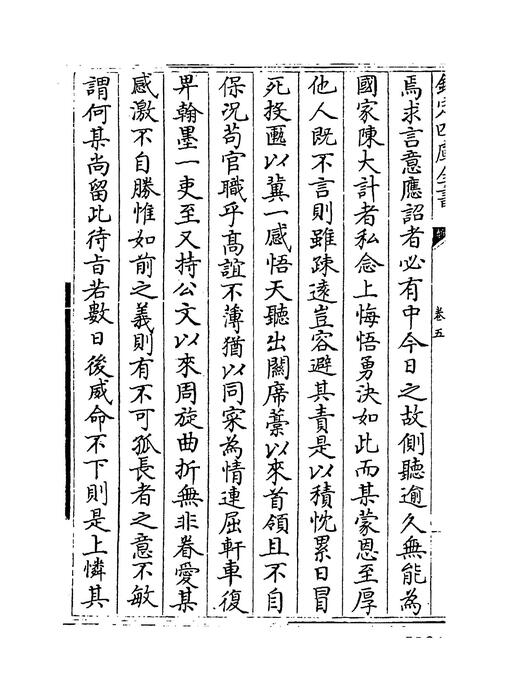 欽定四庫全書
卷五
焉求言意應詔者必有中今日之故側聽逾久無能為
國家陳大計者私念上悔悟勇決如此而某蒙恩至厚
他人既不言則雖疎遠豈容避其責是以積忱累日冒
死投匭以冀一感悟天聽出關席藁以來首領且不自
保況苟官職乎髙誼不薄猶以同寀為情連屈軒車復
畀翰墨一吏至又持公文以來周旋曲折無非眷愛某
感激不自勝惟如前之義則有不可孤長者之意不敏
謂何某尚留此待旨若數日後威命不下則是上憐其